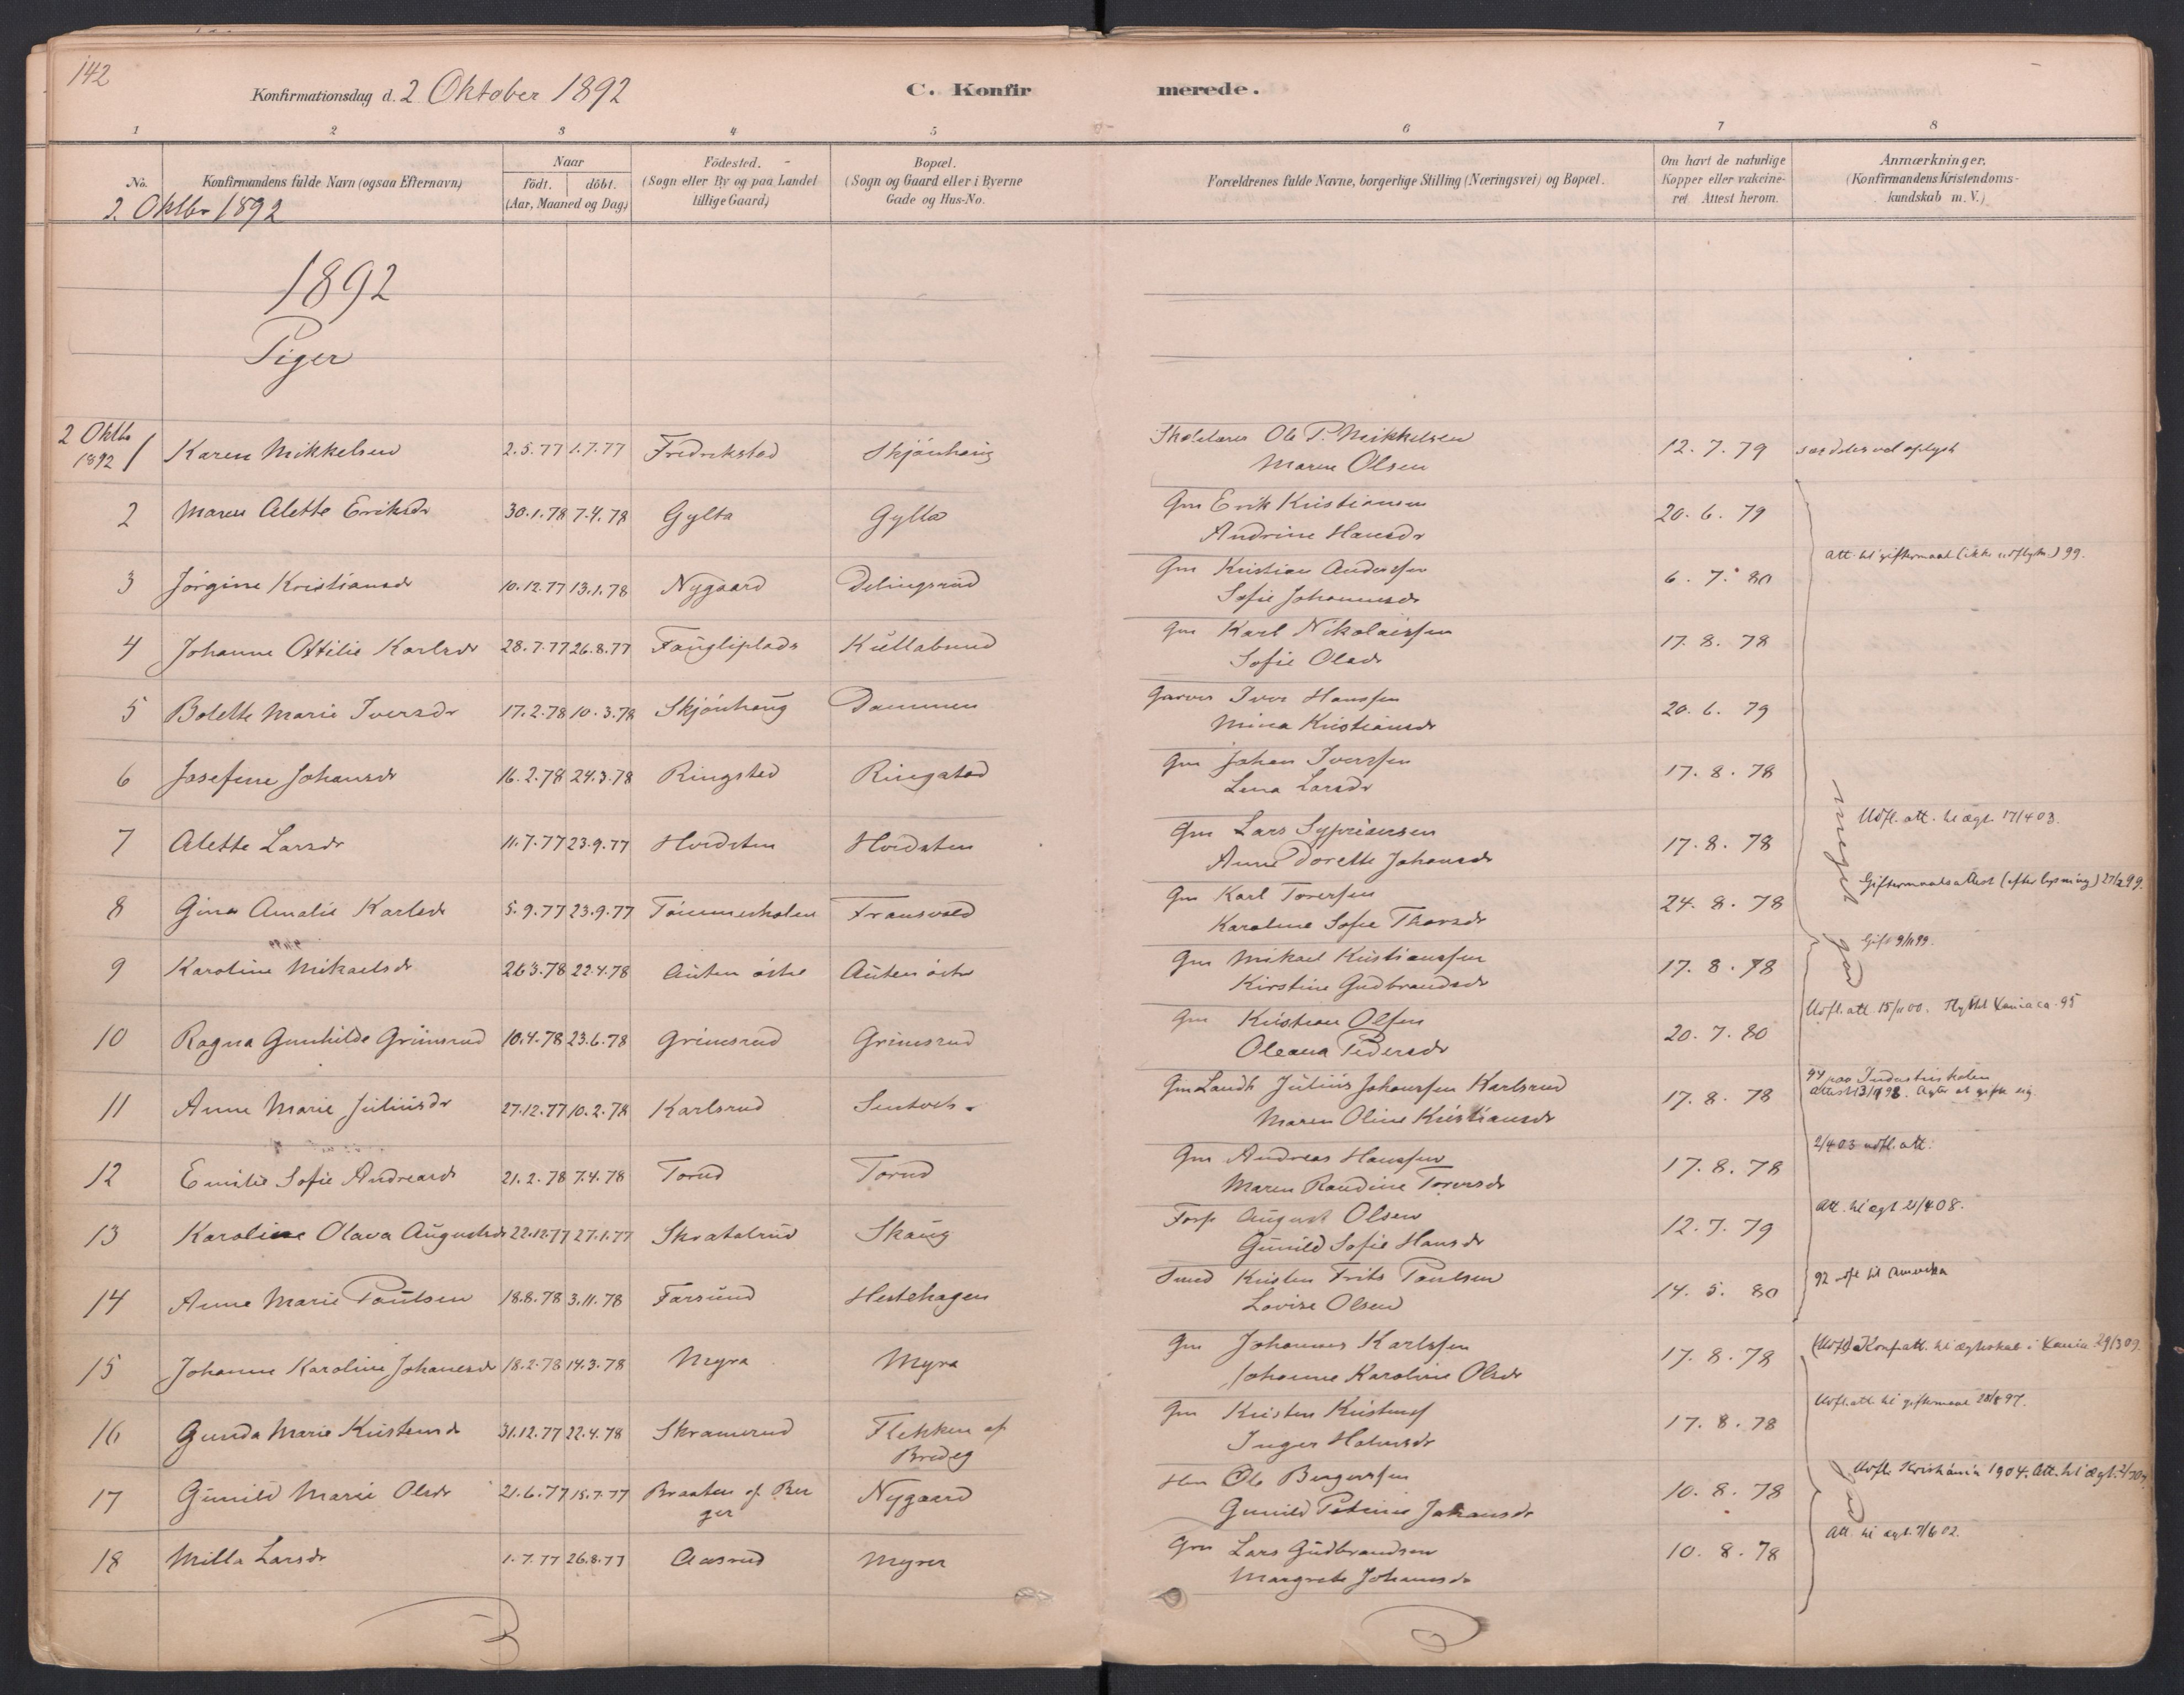 142
Konfirmationsdag d. 2 Oktober 1892
C. Konfirmerede.
1 2 3 4 5 6 7 8
No.
Konfirmandens fulde Navn (ogsaa Efternavn)
Naar
födt. döbt.
(Aar, Maaned og Dag)
Födested.
(Sogn eller By og paa Landet
tillige Gaard)
Bopæl.
(Sogn og Gaard eller i Byerne
Gade og Hus-No.
Forældrenes fulde Navne, borgerlige Stilling (Næringsvei) og Bopæl.
Om havt de naturlige
Kopper eller vakcine-
ret. Attest herom.
Anmærkninger.
(Konfirmandens Kristendoms-
kundskab m. V.)
2. Oktbr 1892
1892
Piger
2 Oktbr
1892
1 Karen Mikkelsen 2.5.77 1.7.77 Fredrikstad Skjönhaug Ole P. Mikkelsen 12.7.79 særdeles vel oplyst
Maren Olsen
2 Maren Alette Eriksdr 30.1.78 7.4.78 Gylta Gylta Gm Erik Kristiansen 20.6.79
Andrine Hansdr
Att. til giftermaal (ikke udflytn.) 99.
3 Jörgine Kristiansdr 10.12.77 13.1.78 Nygaard Delingsrud Gm Kristian Anderssen 6.7.80
Sofie Johannesdr
4 Johanne Ottilie Karlsdr 28.7.77 26.8.77 Faugliplads Kullabund Gm Karl Nikolaissen 17.8.78
Sofie Olsdr
5 Bolette Marie Iversdr 17.2.78 10.3.78 Skjönhaug Dammen Garver Iver Hanssen 20.6.79
Mina Kristiansdr
6 Josefine Johansdr 16.2.78 24.3.78 Ringstad Ringstad Gm Johan Iverssen 17.8.78
Lena Larsdr
meget god
7 Alette Larsdr 11.7.77 23.9.77 Hvidsten Hvidsten Gm Lars Sypriansen 17.8.78 Udfl. att. til ægt. 17/4 03.
Anne Dorette Johansdr
8 Gina Amalie Karlsdr 5.9.77 23.9.77 Tömmerholen Fransvold Gm Karl Torersen 24.8.78 Giftermaalsattest (efter lysning) 27/2 99.
Karoline Sofie Thorsdr
9 Karoline Mikaelsdr 26.3.78 22.4.78 Auten östre Auten östre Gm Mikael Kristianssen 17.8.78 Gift 9/11 99.
Kirstine Gudbrandsdr
10 Ragna Gunhilde Grimsrud 10.4.78 23.6.78 Grimsrud Grimsrud Gm Kristian Olsen 20.7.80 Udfl. att. 15/11 00. Flyttet Xania ca. 95
Oleana Pedersdr
11 Anne Marie Juliusdr 27.12.77 10.2.78 Karlsrud Gm Landh Julius Johanssen Karlsrud 17.8.78 94 paa Industriskolen
Maren Oline Kristiansdr
12 Emilie Sofie Andreasdr 21.2.78 7.4.78 Torud Torud Gm Andreas Hanssen 17.8.78 2/4 03 udfl. att.
Maren Randine Torersdr
13 Karoline Olava Augustsdr 22.12.77 27.1.77 Skratalrud Skaug Forp August Olsen 12.7.79 Att. til ægt 21/4 08.
Gunild Sofie Hansdr
14 Anne Marie Paulsen 18.8.78 3.11.78 Farsund Hestehagen Smed Kristen Frits Paulsen 14.5.80 92 rejst til Amerika
Lovise Olsen
15 Johanne Karoline Johanesdr 18.2.78 14.3.78 Myra Myra Gm Johannes Karlssen 17.8.78 Konf. att. til ægteskab i Xania 29/3 07.
Johanne Karoline Olsdr
16 Gunda Marie Kristensdr 31.12.77 22.4.78 Skramrud Flekken af Gm Kristen Kristens 17.8.78 Udfl. att. til giftermaal 28/8 97.
Bredeg
Inger Halvorsdr
god
17 Gunild Marie Olsdr 21.6.77 15.7.77 Braaten af Ber Nygaard Ole Bergerssen 10.8.78 Udfl. Kristiania 1904. Att. til ægt.
ger
Gunild Petrine Johansdr
18 Milla Larsdr 1.7.77 26.8.77 Aasrud Myrer Gm Lars Gudbrandsen 10.8.78 Att. til ægt. 7/6 02.
Margrete Johannsdr